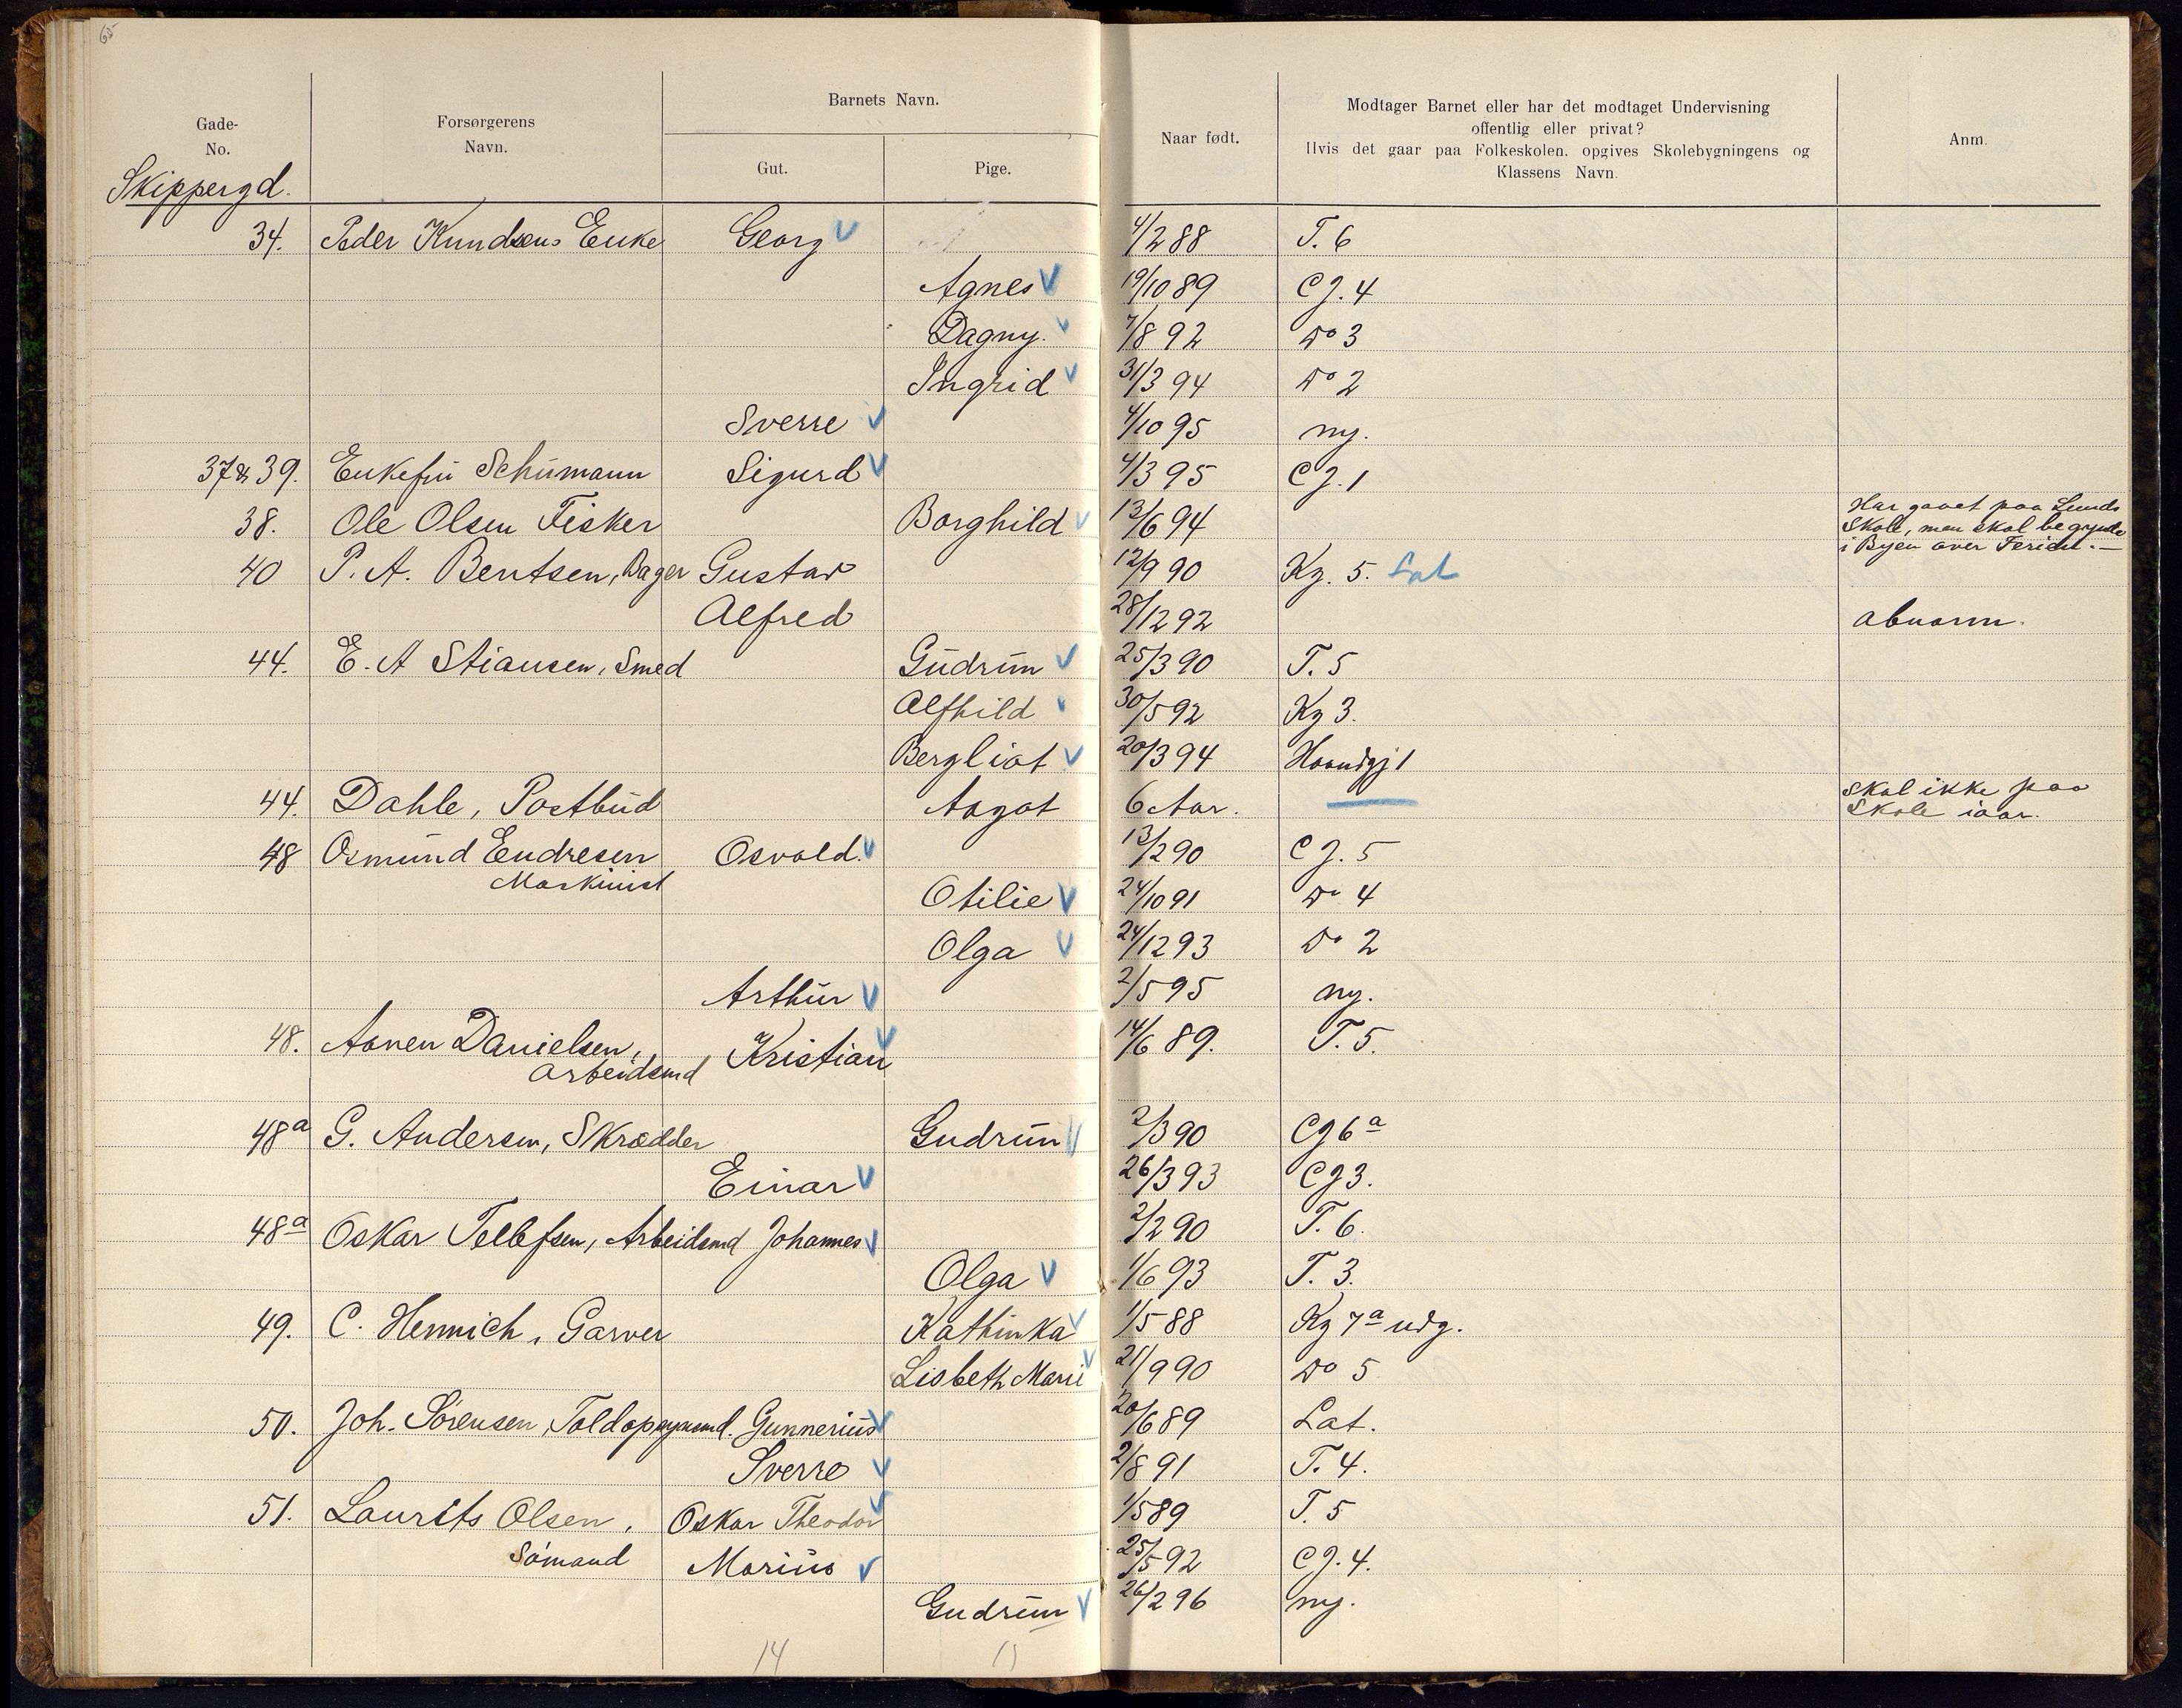 65
Gade-
No.
Forsørgerens
Navn.
Barnets Navn.
Gut.
Pige.
Naar født.
Modtager Barnet eller har det modtaget Undervisning
offentlig eller privat?
Hvis det gaar paa Folkeskolen. opgives Skolebygningens og
Klassens Navn.
Anm.
Skippergd.
34. Peder Knudsens Enke Georg V 4/2 88 T. 6
Agnes V 19/10 89 CJ. 4
Dagny. V 7/8 92 Do 3
Ingrid V 31/3 94 Do 2
Sverre V 4/10 95 ny.
37 & 39. Enkefru Schumann Sigurd V 4/3 95 CJ. 1
38. Ole Olsen Fisker Borghild V 13/6 94 Har gaaet paa Lunds
Skole, men skal begynde
i Byen over Ferien. —
40 P. A. Bentsen, Bager Gustav 12/9 90 Kg. 5. Lat
Alfred 28/12 92 abnorm.
44. E. A Stiansen, Smed Gudrun V 25/3 90 T. 5
Alfhild V 30/5 92 Kg 3.
Bergliot V 20/3 94 Haandgj 1
44. Dahle, Postbud Aagot 6 Aar. Skal ikke paa
Skole iaar.
48 Osmund Endresen Osvald. V 13/2 90 CJ. 5
Maskinist
Otilie V 24/10 91 Do 4
Olga V 24/12 93 Do 2
Arthur V 2/5 95 ny.
48. Aanen Danielsen, Kristian V 14/6 89. T. 5.
Arbeidsmd
48a G. Andersen, Skrædder Gudrun V 2/3 90 CJ 6a
Einar V 26/3 93 CJ 3.
48a Oskar Tellefsen, Arbeidsmd Johannes V 2/2 90 T. 6.
Olga V 1/6 93 T. 3.
49. C. Hennich, Garver Kathinka V 1/5 88 Kg 7a udg.
Lisbeth Marie V 21/9 90 Do 5
50. Joh. Sørensen, Toldopsynsmd. Gunnerius V 20/6 89 Lat.
Sverre V 2/8 91 T. 4.
51. Laurits Olsen, Oskar Theodor V 1/5 89 T. 5
Sømand Marius V 25/5 92 CJ. 4.
Gudrun V 26/2 96 ny.
14